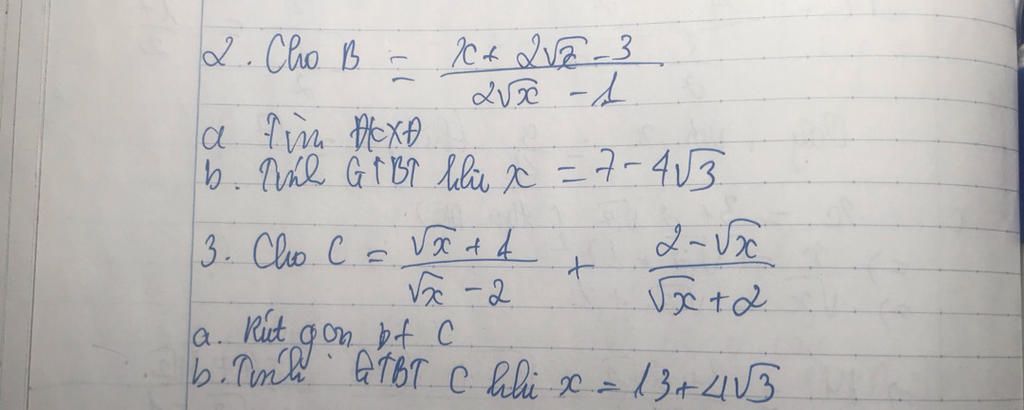 2. Cho B = (x + 2√x - 3)/(2√x - 1)
a Tìm ĐKXĐ
b. Tính GTBT khi x = 7 - 4√3
3. Cho C = (√x + 1)/(√x - 2) + (2 - √x)/(√x + 2)
a. Rút gọn bt C
b. Tính GTBT C khi x = 13 + 4√3